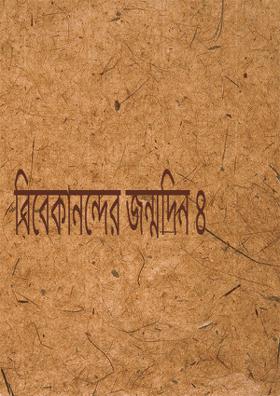 বিবেকানন্দের জন্মদিন ৪